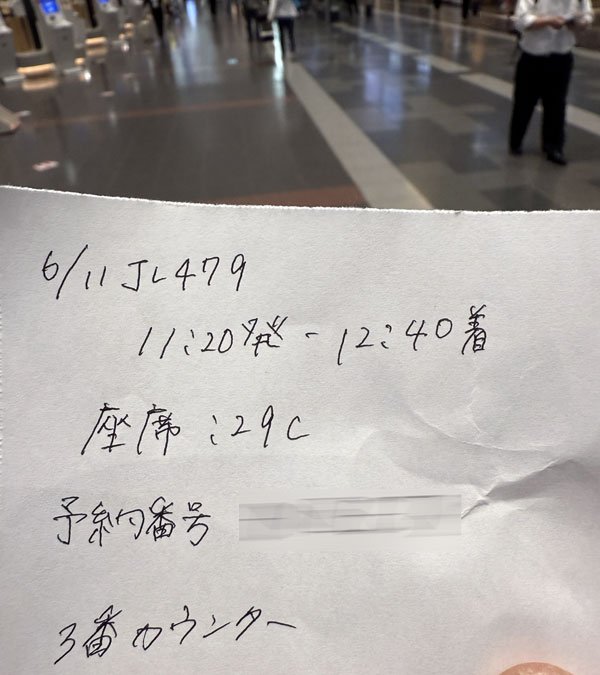 6/11 JL479
11:20発 - 12:40着
座席:29C
予約番号
3番カウンター